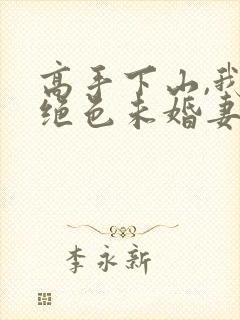 高手下山,我
绝色未婚妻
李永新